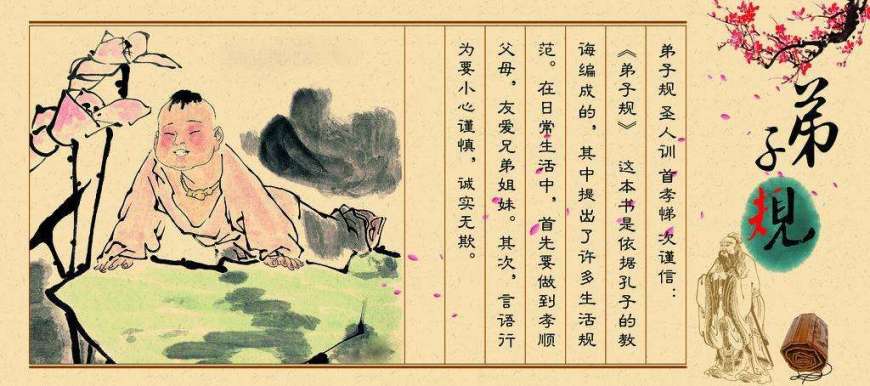 弟子规
弟子规 圣人训 首孝悌 次谨信：
《弟子规》 这本书是依据孔子的教
诲编成的，其中提出了许多生活规
范。在日常生活中，首先要做到孝顺
父母，友爱兄弟姐妹。其次，言语行
为要小心谨慎，诚实无欺。